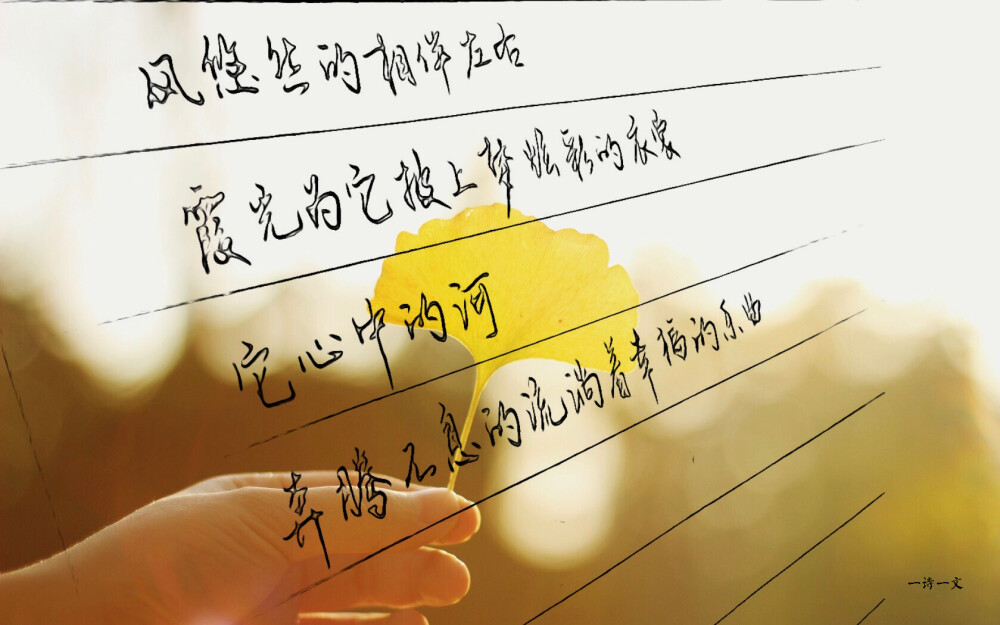 风悠然的相伴左右
霞光为它披上梦炫彩的衣裳
它心中的河
奔腾不息的流淌着幸福的乐曲
一诗一文